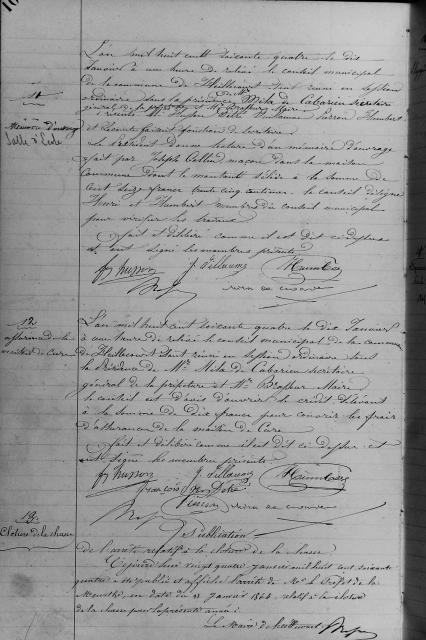 11
Mémoire d'ouvrage
Salle d'école
L'an mil huit cent soixante quatre le dix
Janvier à une heure de relevé le conseil municipal
de la commune de
ordinaire sous la présidence de Mr Mita de Cabarieu secrétaire
général de la préfecture et Mr Brasseur Maire
présents Mr Husson Villaume Humbert
et faisant fonction de secrétaire
Le Président donne lecture d'un mémoire d'ouvrage
fait par Joseph Collin maçon dans la maison
commune dont le montant s'élève à la somme de
cent seize francs trente cinq centimes. le conseil désigne
Henri et Humbert membres du conseil municipal
pour vérifier les travaux
fait et délibéré comme il est dit ci-dessus
et ont signé les membres présents
husson J. Villaume
12
assurance de la
maison de Cure
L'an mil huit cent soixante quatre le dix Janvier
à une heure de relevé le conseil municipal de la commune
de étant réuni en session ordinaire sous
la présidence de Mr Mita de Cabarieu secrétaire
général de la préfecture et Mr Brasseur Maire
le conseil est d'avis d'ouvrir le crédit s'élevant
à la somme de dix francs pour couvrir les frais
d'assurance de la maison de Cure
fait et délibéré comme il est dit ci-dessus et
ont signé les membres présents
husson J. Villaume
françois
13
Clôture de la chasse
Publication
de l'arrêté relatif à la clôture de la chasse
Cejourd'hui vingt quatre janvier mil huit cent soixante
quatre a été publié et affiché l'arrêté de Mr le Préfet de la
Meurthe, en date du janvier 1864 relatif à la clôture
de la chasse pour la présente année
Le Maire de